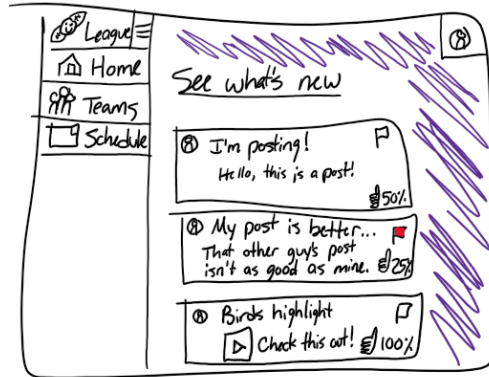 League
Home
Teams
Schedule
See what's new
I'm posting!
Hello, this is a post!
50%
My post is better...
That other guy's post
isn't as good as mine.
25%
Birds highlight
Check this out!
100%